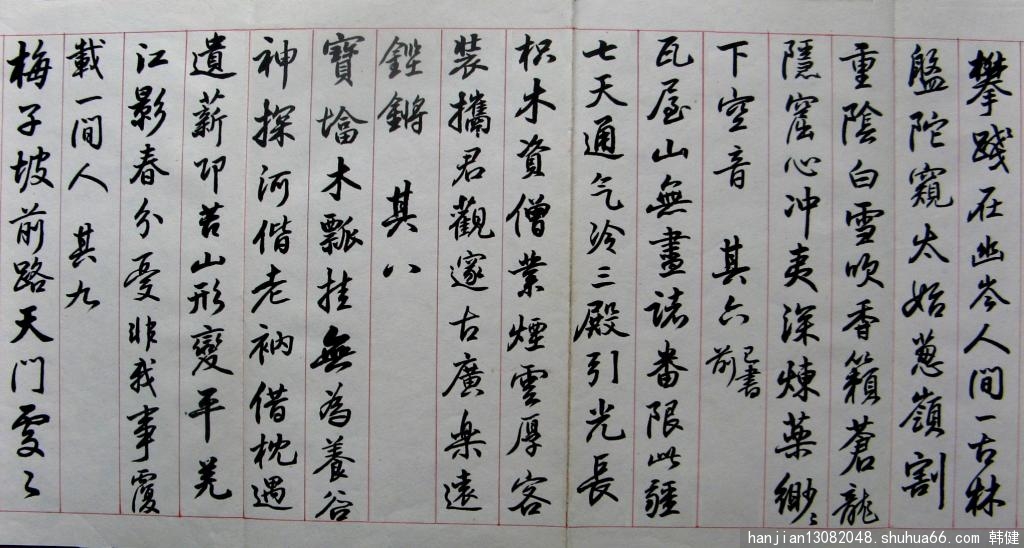 攀踐在幽岑人間一古林
盤陀窺太始蔥嶺割
重陰白雪吹香籟蒼龍
隱窟心冲夷深煉藥緲緲
下空音 其六 已書前
瓦屋山無畫諸番限此疆
七天通气冷三殿引光長
枳木資僧業煙雲厚客
裝攜君觀邃古廣樂遠
鏗鏘 其八
寶墖木瓢挂無為養谷
神探河偕老衲借枕遇
遺薪卭笮山形變平羌
江影春分憂非我事覆
載一間人 其九
梅子坡前路天門雯〻
hanjian13082048.shuhua66.com 韩健